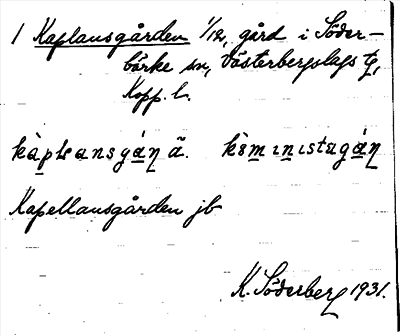 1 Kaplansgården 1/12, gård i Söder-
bärke sn, Västerbergslags tg,
Kopp. l.
kàplansgán ä. kòministəgán
Kapellansgården jb
K. Söderberg 1931.